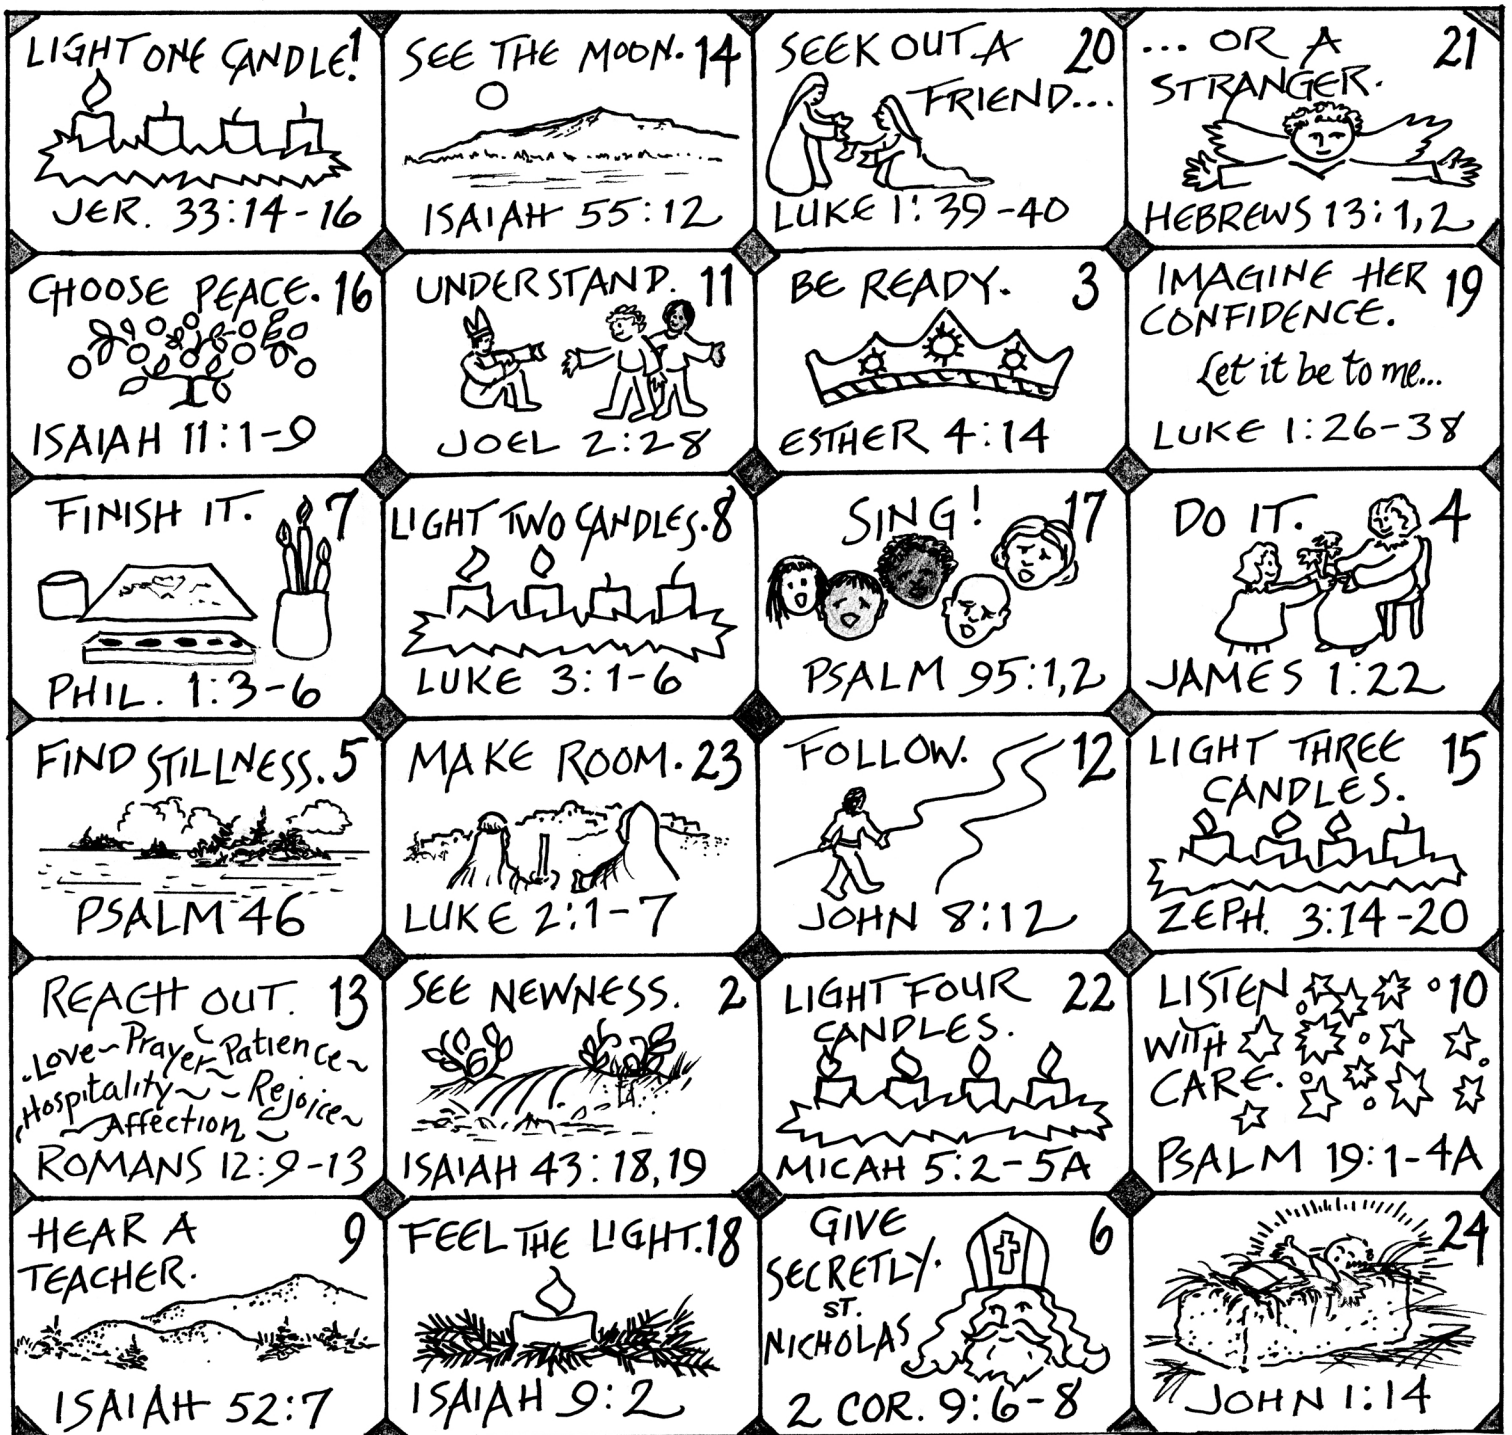 LIGHT ONE CANDLE! 1
JER. 33:14-16
SEE THE MOON. 14
ISAIAH 55:12
SEEK OUT A 20
FRIEND...
LUKE 1:39-40
... OR A 21
STRANGER.
HEBREWS 13:1,2
CHOOSE PEACE. 16
ISAIAH 11:1-9
UNDERSTAND. 11
JOEL 2:28
BE READY. 3
ESTHER 4:14
IMAGINE HER 19
CONFIDENCE.
Let it be to me...
LUKE 1:26-38
FINISH IT. 7
PHIL. 1:3-6
LIGHT TWO CANDLES. 8
LUKE 3:1-6
SING! 17
PSALM 95:1,2
DO IT. 4
JAMES 1:22
FIND STILLNESS. 5
PSALM 46
MAKE ROOM. 23
LUKE 2:1-7
FOLLOW. 12
JOHN 8:12
LIGHT THREE 15
CANDLES.
ZEPH. 3:14-20
REACH OUT. 13
Love~ Prayer~ Patience~
Hospitality~ ~ Rejoice~
~Affection~
ROMANS 12:9-13
SEE NEWNESS. 2
ISAIAH 43:18,19
LIGHT FOUR 22
CANDLES.
MICAH 5:2-5A
LISTEN 10
WITH
CARE.
PSALM 19:1-4A
HEAR A 9
TEACHER.
ISAIAH 52:7
FEEL THE LIGHT. 18
ISAIAH 9:2
GIVE 6
SECRETLY.
ST.
NICHOLAS
2 COR. 9:6-8
24
JOHN 1:14